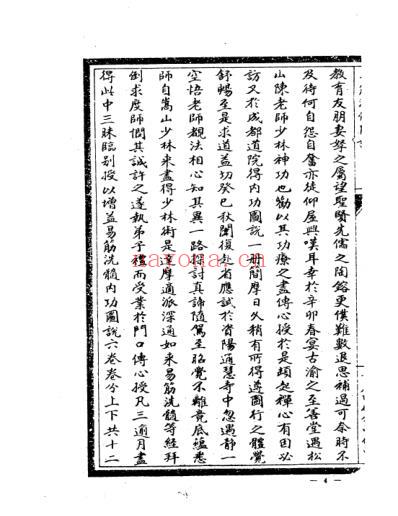 教育友朋妻孥之屬望聖賢先儒之陶鎔更僕難數退思補過可奈時不
及待何自怨自奮亦徒仰屋興嘆耳幸於辛卯春宴古渝之至善堂遇松
山陳老師少林神功也勸以其功療之盡傳心授於是頗起禪心有因必
訪又於成都道院得內功圖說一冊簡摩日久稍有所得遵圖行之體覺
舒暢至是求道益切癸巳秋闈復赴省應試於資陽通慧寺中忽遇靜一
空悟老師觀法相心知其異一路探討真諦隨駕至昭覺不離竟底蘊悉
師自嵩山少林來盡得少林術是達摩適派深通如來易筋洗髓等經拜
倒求度師憫其誠許之遂執弟子禮而受業於門口傳心授凡三逾月盡
得此中三昧臨别授以增益易筋洗髓內功圖說六卷卷分上下共十二
— 4 —